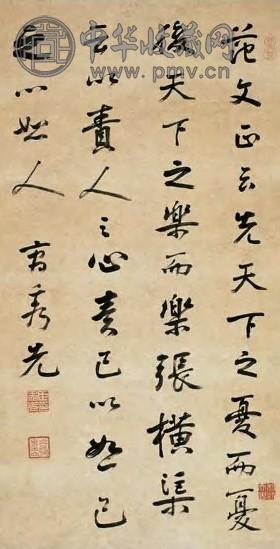 中华收藏网
www.pmv.cn
范文正云先天下之憂而憂
後天下之樂而樂張橫渠
云以責人之心責己以恕己
之心恕人 曹秀先